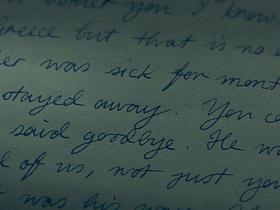 bother you. I know
Greece but that is no e
was sick for mont
stayed away. You co
said goodbye. He wa
of us, not just you
was his way